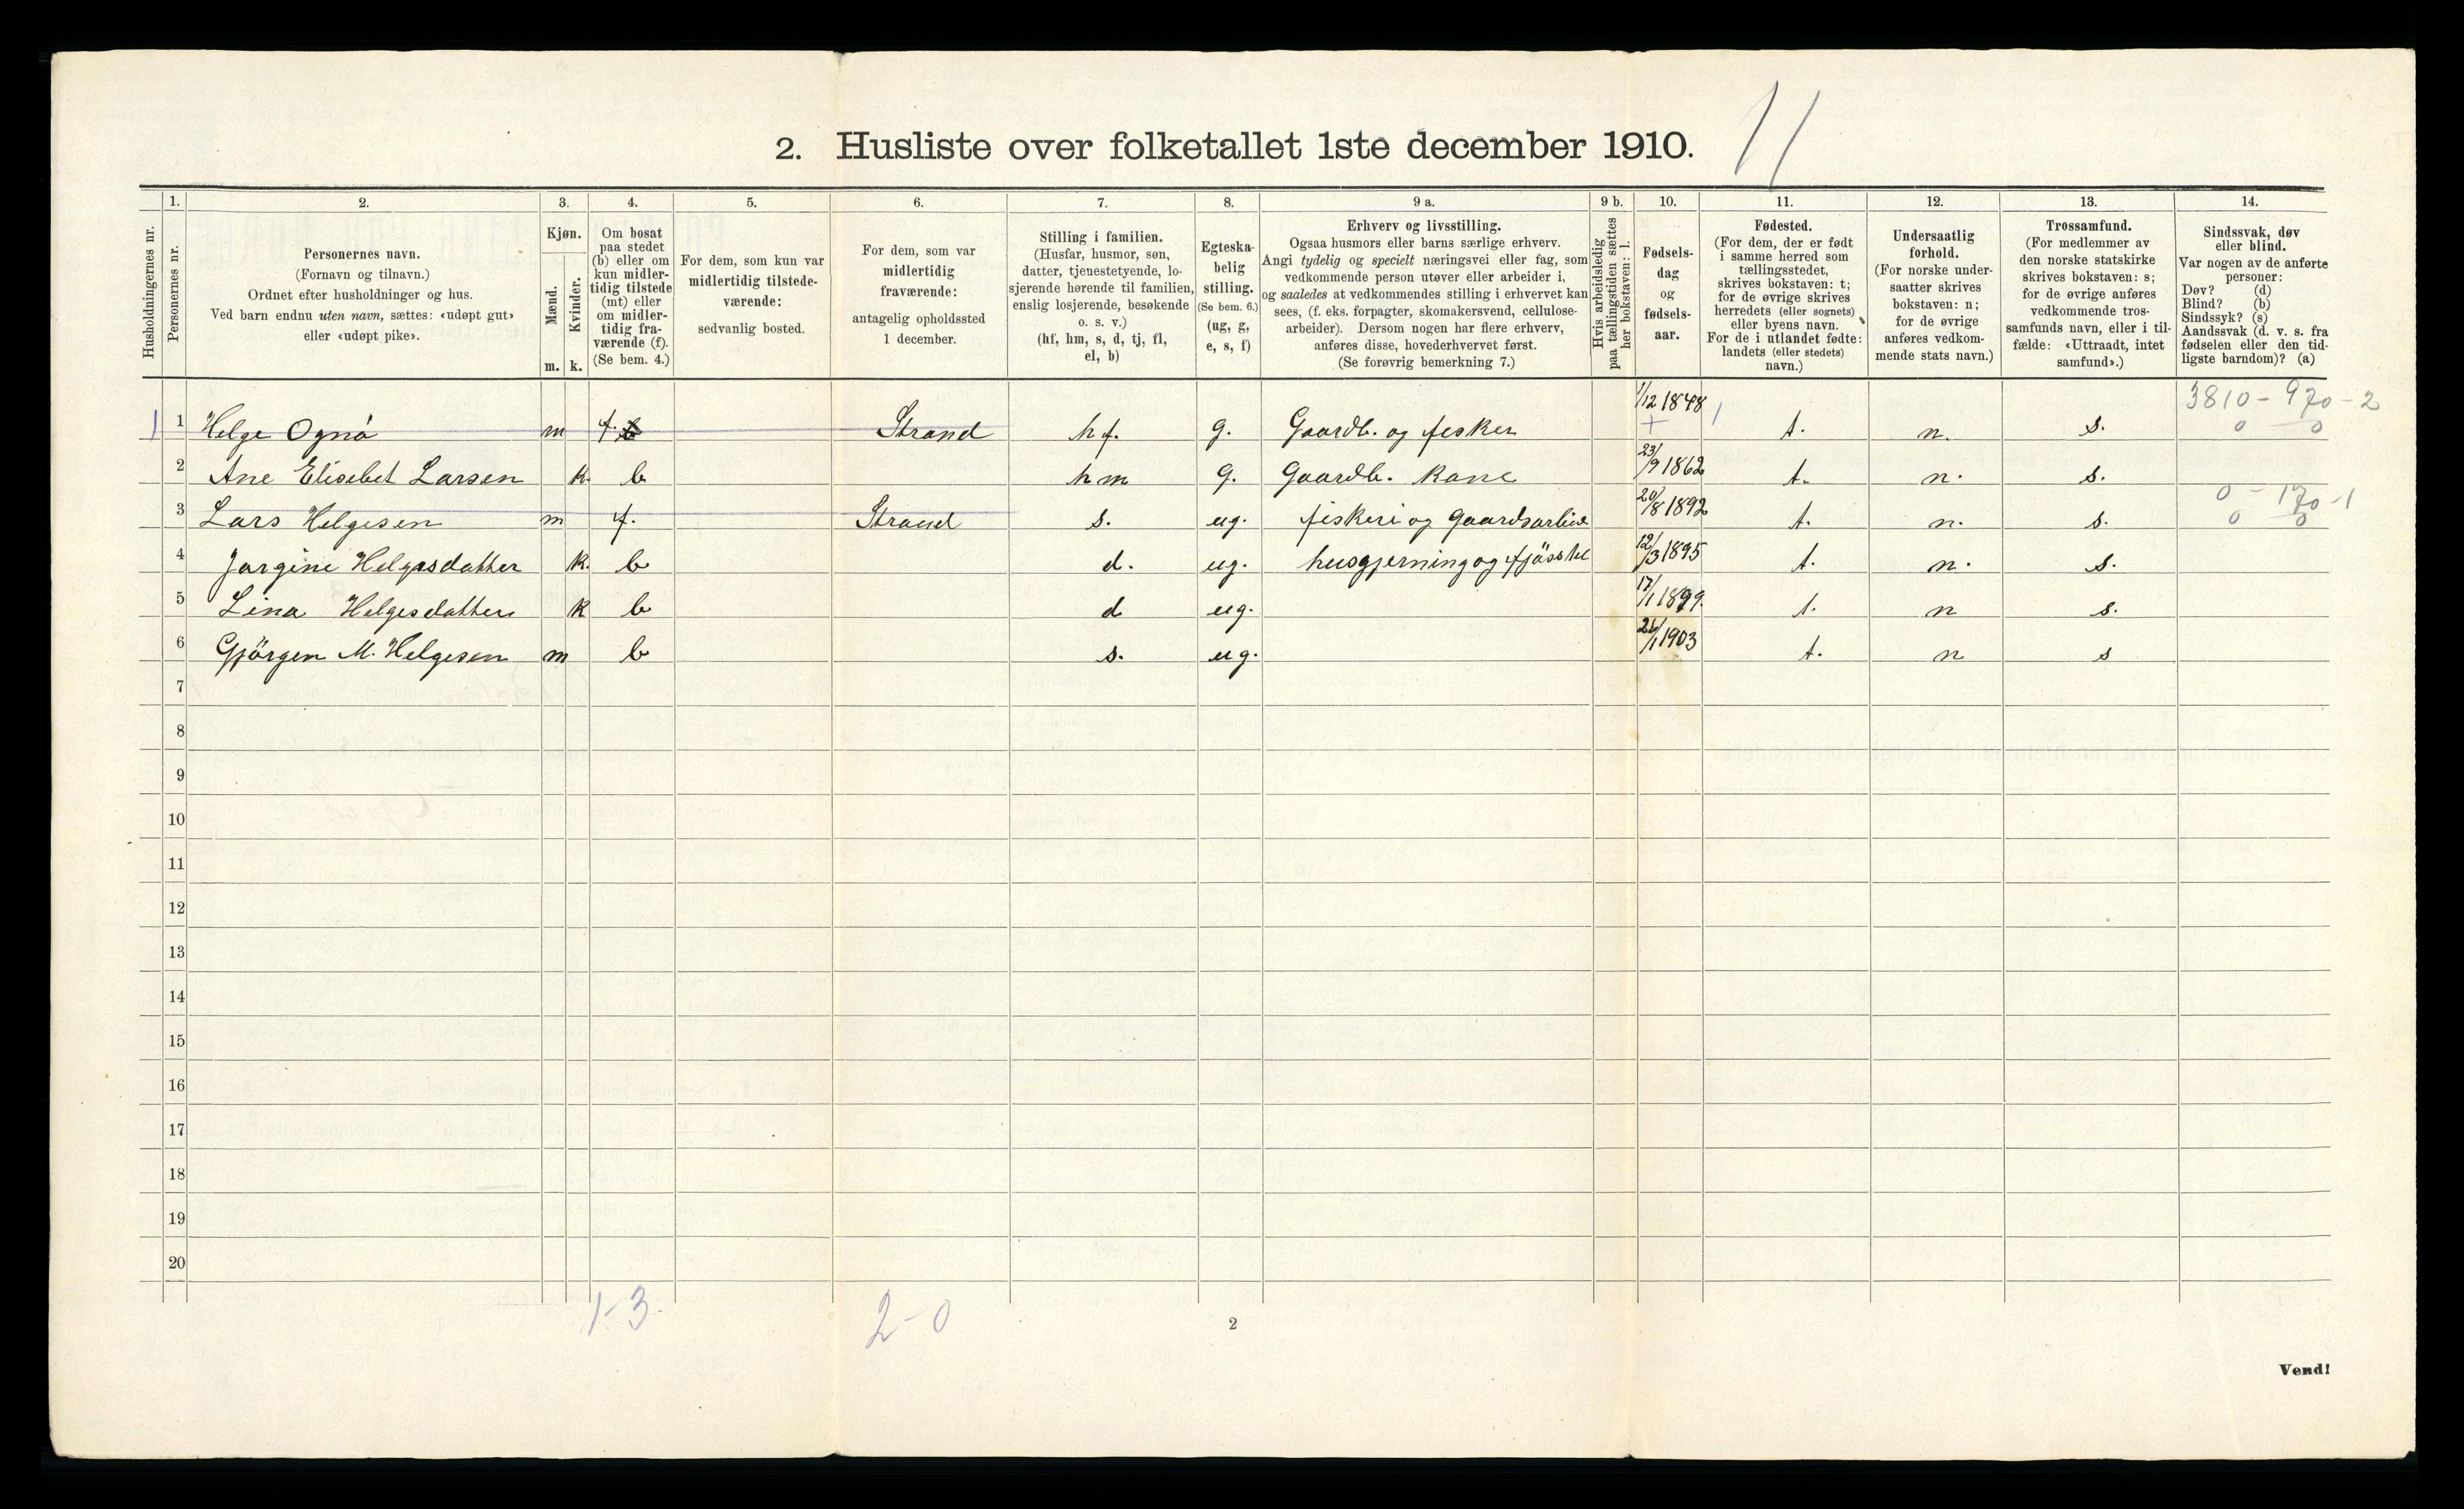 2. Husliste over folketallet 1ste december 1910. 11
Husholdningernes nr.
1. Personernes nr.
2. Personernes navn.
(Fornavn og tilnavn.)
Ordnet efter husholdninger og hus.
Ved barn endnu uten navn, sættes: «udøpt gut»
eller «udøpt pike».
3. Kjøn.
Mænd. Kvinder.
m. k.
4. Om bosat
paa stedet
(b) eller om
kun midler-
tidig tilstede
(mt) eller
om midler-
tidig fra-
værende (f).
(Se bem. 4.)
5. For dem, som kun var
midlertidig tilstede-
værende:
sedvanlig bosted.
6. For dem, som var
midlertidig
fraværende:
antagelig opholdssted
1 december.
7. Stilling i familien.
(Husfar, husmor, søn,
datter, tjenestetyende, lo-
sjerende hørende til familien,
enslig losjerende, besøkende
o. s. v.)
(hf, hm, s, d, tj, fl,
el, b)
8. Egteska-
belig
stilling.
(Se bem. 6.)
(ug, g,
e, s, f)
9 a. Erhverv og livsstilling.
Ogsaa husmors eller barns særlige erhverv.
Angi tydelig og specielt næringsvei eller fag, som
vedkommende person utøver eller arbeider i,
og saaledes at vedkommendes stilling i erhvervet kan
sees, (f. eks. forpagter, skomakersvend, cellulose-
arbeider). Dersom nogen har flere erhverv,
anføres disse, hovederhvervet først.
(Se forøvrig bemerkning 7.)
9 b. Hvis arbeidsledig
paa tællingstiden sættes
her bokstaven: l.
10. Fødsels-
dag
og
fødsels-
aar.
11. Fødested.
(For dem, der er født
i samme herred som
tællingsstedet,
skrives bokstaven: t;
for de øvrige skrives
herredets (eller sognets)
eller byens navn.
For de i utlandet fødte:
landets (eller stedets)
navn.)
12. Undersaatlig
forhold.
(For norske under-
saatter skrives
bokstaven: n;
for de øvrige
anføres vedkom-
mende stats navn.)
13. Trossamfund.
(For medlemmer av
den norske statskirke
skrives bokstaven: s;
for de øvrige anføres
vedkommende tros-
samfunds navn, eller i til-
fælde: «Uttraadt, intet
samfund».)
14. Sindssvak, døv
eller blind.
Var nogen av de anførte
personer:
Døv? (d)
Blind? (b)
Sindssyk? (s)
Aandssvak (d. v. s. fra
fødselen eller den tid-
ligste barndom)? (a)
3810 - 970 - 2
1 1 Helge Ognø m f. b Strand hf. g. Gaardb. og fisker 1/12 1848 t. n. s. 0 0
2 Ane Elisebet Larsen k. b hm g. Gaardb. kone 23/9 1862 t. n. s.
0 - 170 - 1
3 Lars Helgesen m f. Strand s. ug. fiskeri og Gaardsarbeid 20/8 1892 t. n. s. 0 0
4 Jørgine Helgesdatter k. b d. ug. husgjerning og fjösstel 12/3 1895 t. n. s.
5 Lina Helgesdatter k b d ug. 17/1 1899. t. n s.
6 Gjörgen M. Helgesen m b s. ug. 1903 t. n s
7
8
9
10
11
12
13
14
15
16
17
18
19
20
1-3. 2-0
2
Vend!